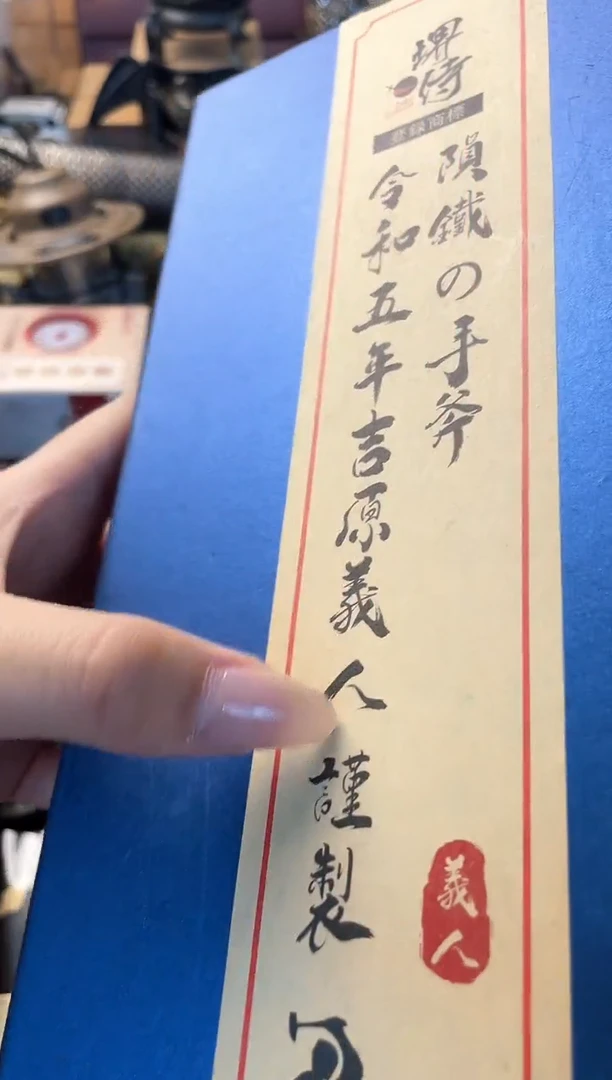 堺侍
登録商標
隕鐵の手斧
令和五年吉原義人謹製
義人